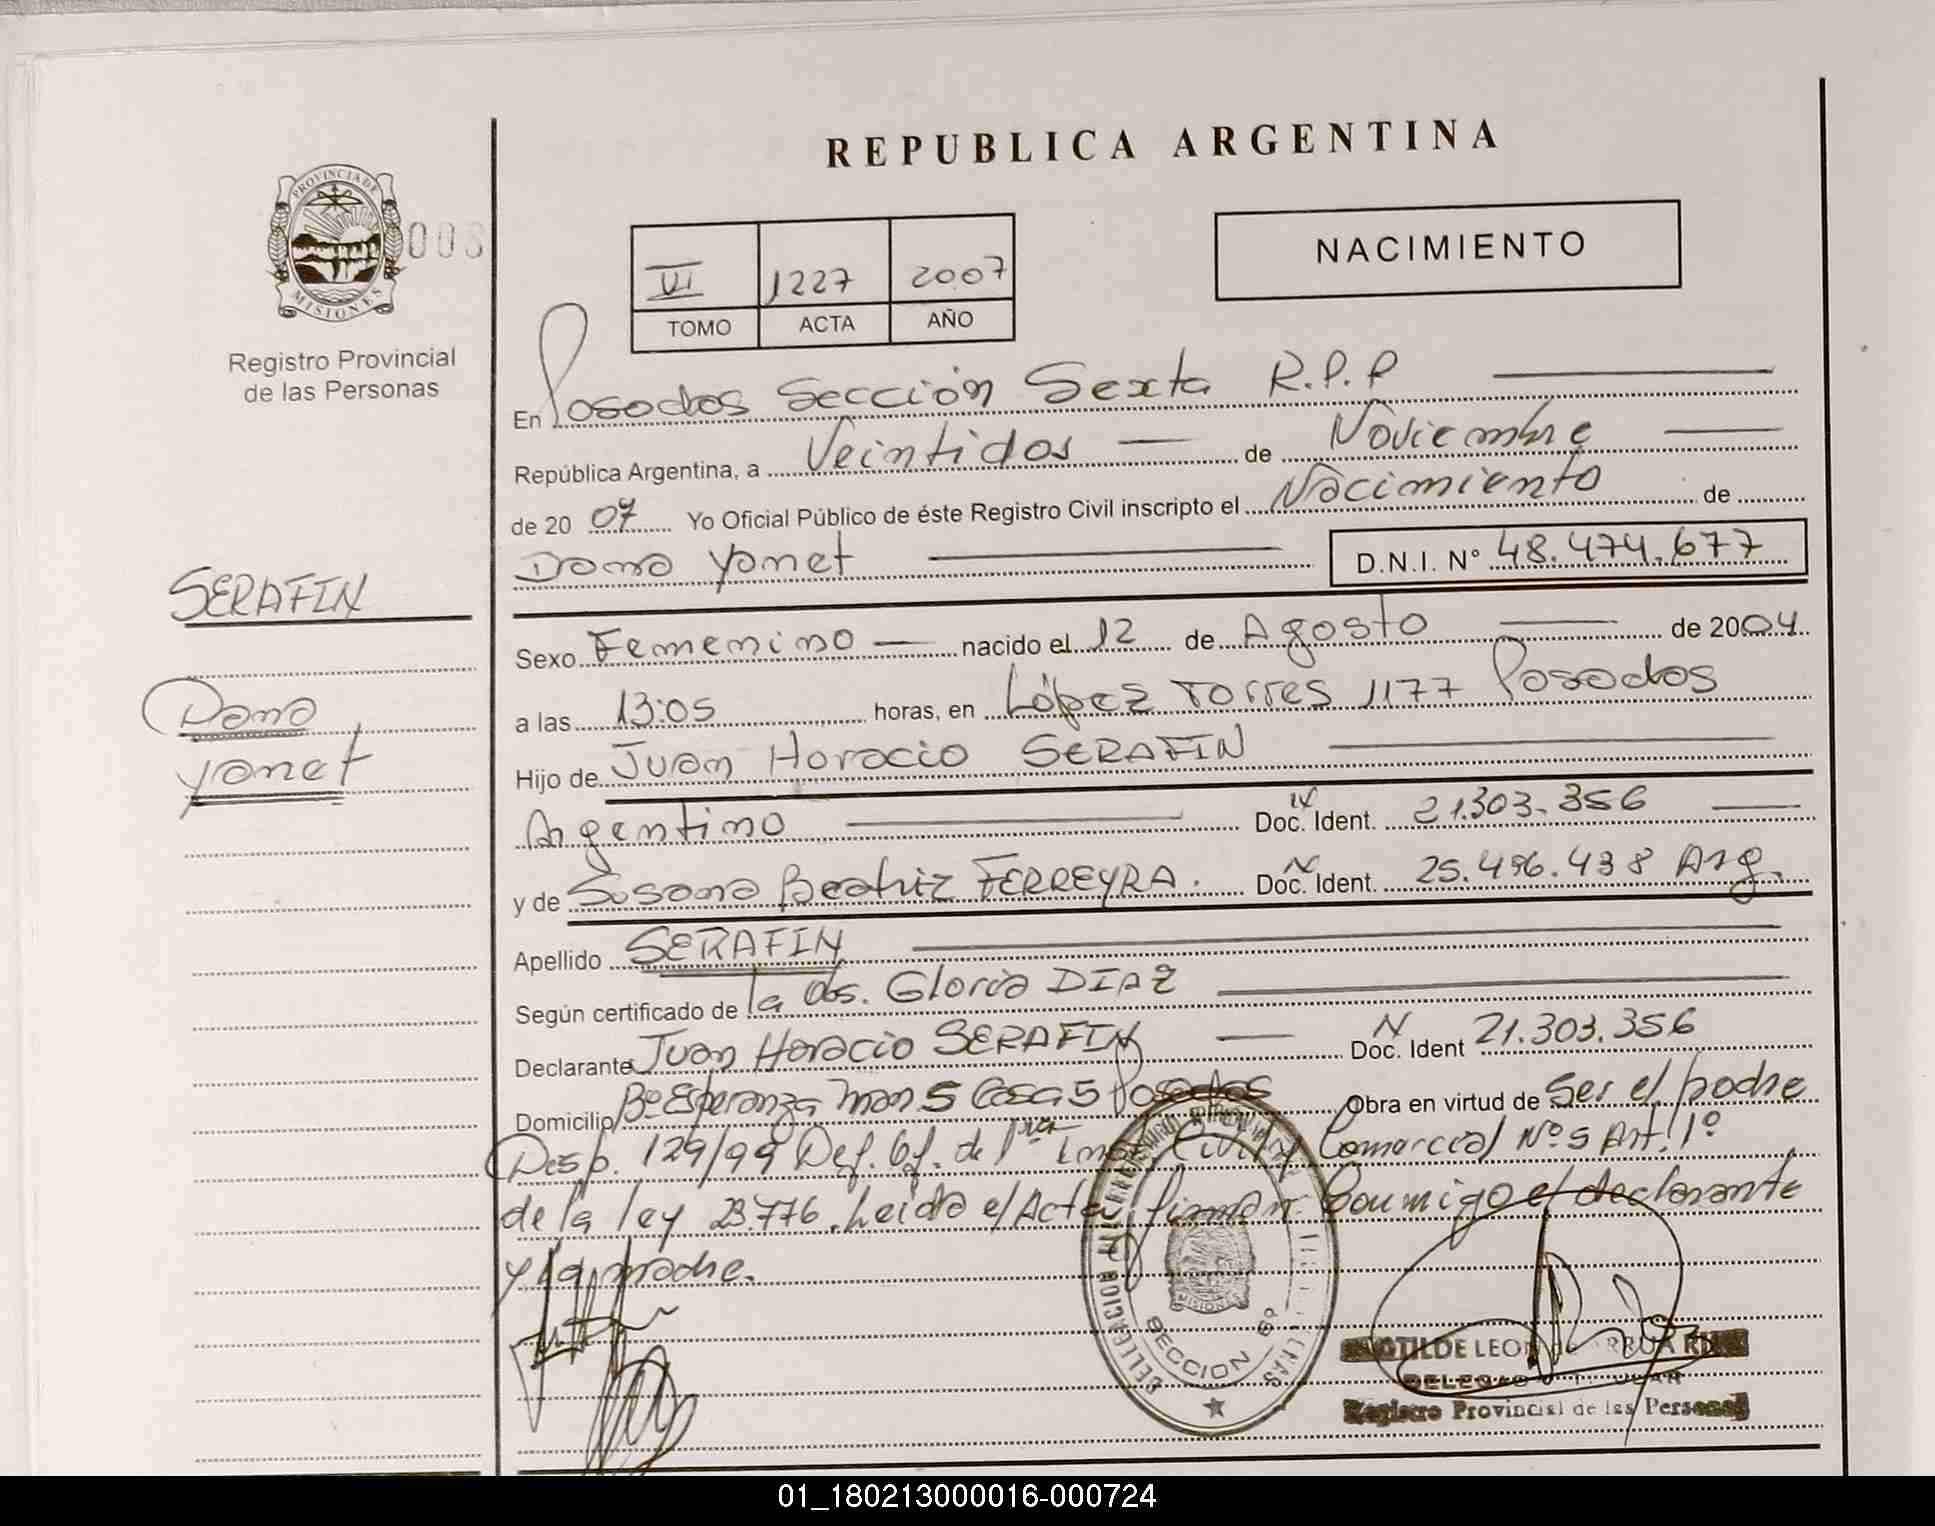 REPUBLICA ARGENTINA
PROVINCIA DE
MISIONES
008
Registro Provincial
de las Personas
VI 1227 2007
TOMO ACTA AÑO
NACIMIENTO
En Posadas Sección Sexta R.P.P
República Argentina, a Veintidos de Noviembre
de 20 07 Yo Oficial Público de éste Registro Civil inscripto el Nacimiento de
Dana Yanet D.N.I. N° 48.474.677
SERAFIN
Dana
Yanet
Sexo Femenino nacido el 12 de Agosto de 2004
a las 13:05 horas, en López Torres 1177 Posadas
Hijo de Juan Horacio SERAFIN
Argentino Doc. Ident. 21.303.356
y de Susana Beatriz FERREYRA. Doc. Ident. 25.496.438 Arg.
Apellido SERAFIN
Según certificado de la Obs. Gloria DIAZ
Declarante Juan Horacio SERAFIN Doc. Ident N 21.303.356
Domicilio Bº Esperanza Man 5 Casa 5 Posadas Obra en virtud de Ser el padre
Desp. 129/99 Def. Of. de 1ra Inst. Civil y Comercial Nº 5 Art. 1º
de la ley 23.776. Leída el Acta, firman conmigo el declarante
y la madre.
SECCION 6ª
MISIONES
DELEGADO TITULAR
Registro Provincial de las Personas
01_180213000016-000724